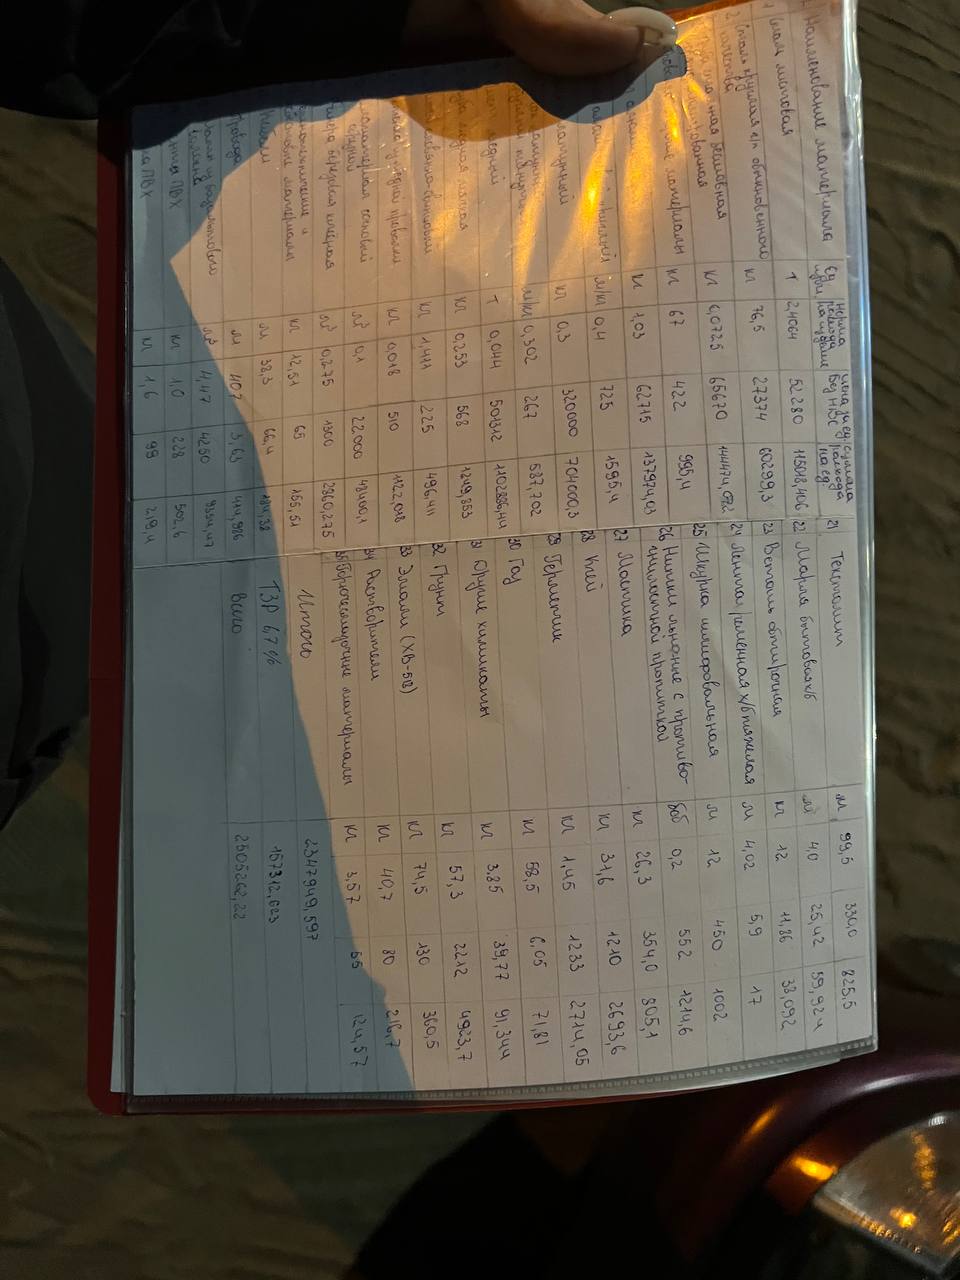 Наименование материала Ед изм. норма расхода на изделие цена за ед. без НДС сумма расхода на ед.
1 Сталь листовая т 2,4064 52280 115018,406
2 Сталь круглая г/п обыкновенного
качества кг 76,5 27374 60299,3
бесшовная кг 0,0725 65670 144474,072
материалы кг 67 422 995,4
кг 1,03 62715 137974,03
м/кг 0,4 725 1595,4
латунный кг 0,3 320000 704000,3
м/кг 0,302 267 587,702
медный т 0,044 501312 1102886,44
медная мягкая кг 0,253 568 1249,853
оловянно-свинцовый кг 1,411 225 496,411
из медной проволки кг 0,018 510 1122,018
сосновый м³ 0,1 22000 48400,1
березовая клееная м³ 0,275 1300 2860,275
материалы кг 12,51 65 155,51
Кабели м 38,3 66,4 184,38
Провода м 407 3,63 414,986
из базальтового
волокна м³ 4,47 4250 9354,47
ПВХ кг 1,0 228 502,6
ПВХ кг 1,6 99 219,4
21 Текстолит м 99,5 330,0 825,5
22 Марля бытовая х/б м 4,0 25,42 59,924
23 Ветошь обтирочная кг 12 11,86 38,092
24 Лента ременная х/б тяжелая м 4,02 5,9 17
25 Шкурка шлифовальная м 12 450 1002
26 Нитки льняные с противо-
гнилостной пропиткой боб 0,2 552 1214,6
27 Мастика кг 26,3 354,0 805,1
28 Клей кг 31,6 1210 2693,6
29 Герметик кг 1,45 1233 2714,05
30 Газ кг 58,5 6,05 71,81
31 Другие химикаты кг 3,85 39,77 91,344
32 Грунт кг 57,3 2212 4923,7
33 Эмали (ХВ-518) кг 74,5 130 360,5
34 Растворители кг 40,7 80 216,7
35 Горючесмазочные материалы кг 3,57 55 124,57
Итого 2347949,597
ТЗР 6,7% 157312,623
Всего 2505262,22